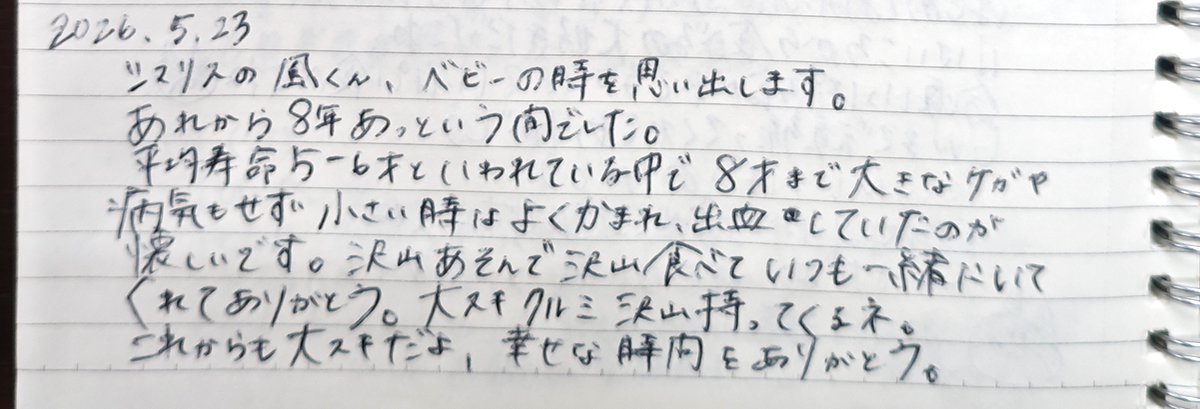 2026.5.23
シマリスの風くん、ベビーの時を思い出します。
あれから8年あっという間でした。
平均寿命5-6才といわれている中で8才まで大きなケガや
病気もせず小さい時はよくかまれ、出血していたのが
懐しいです。沢山あそんで沢山食べていつも一緒にいて
くれてありがとう。大スキクルミ沢山持ってくるネ。
これからも大スキだよ、幸せな時間をありがとう。